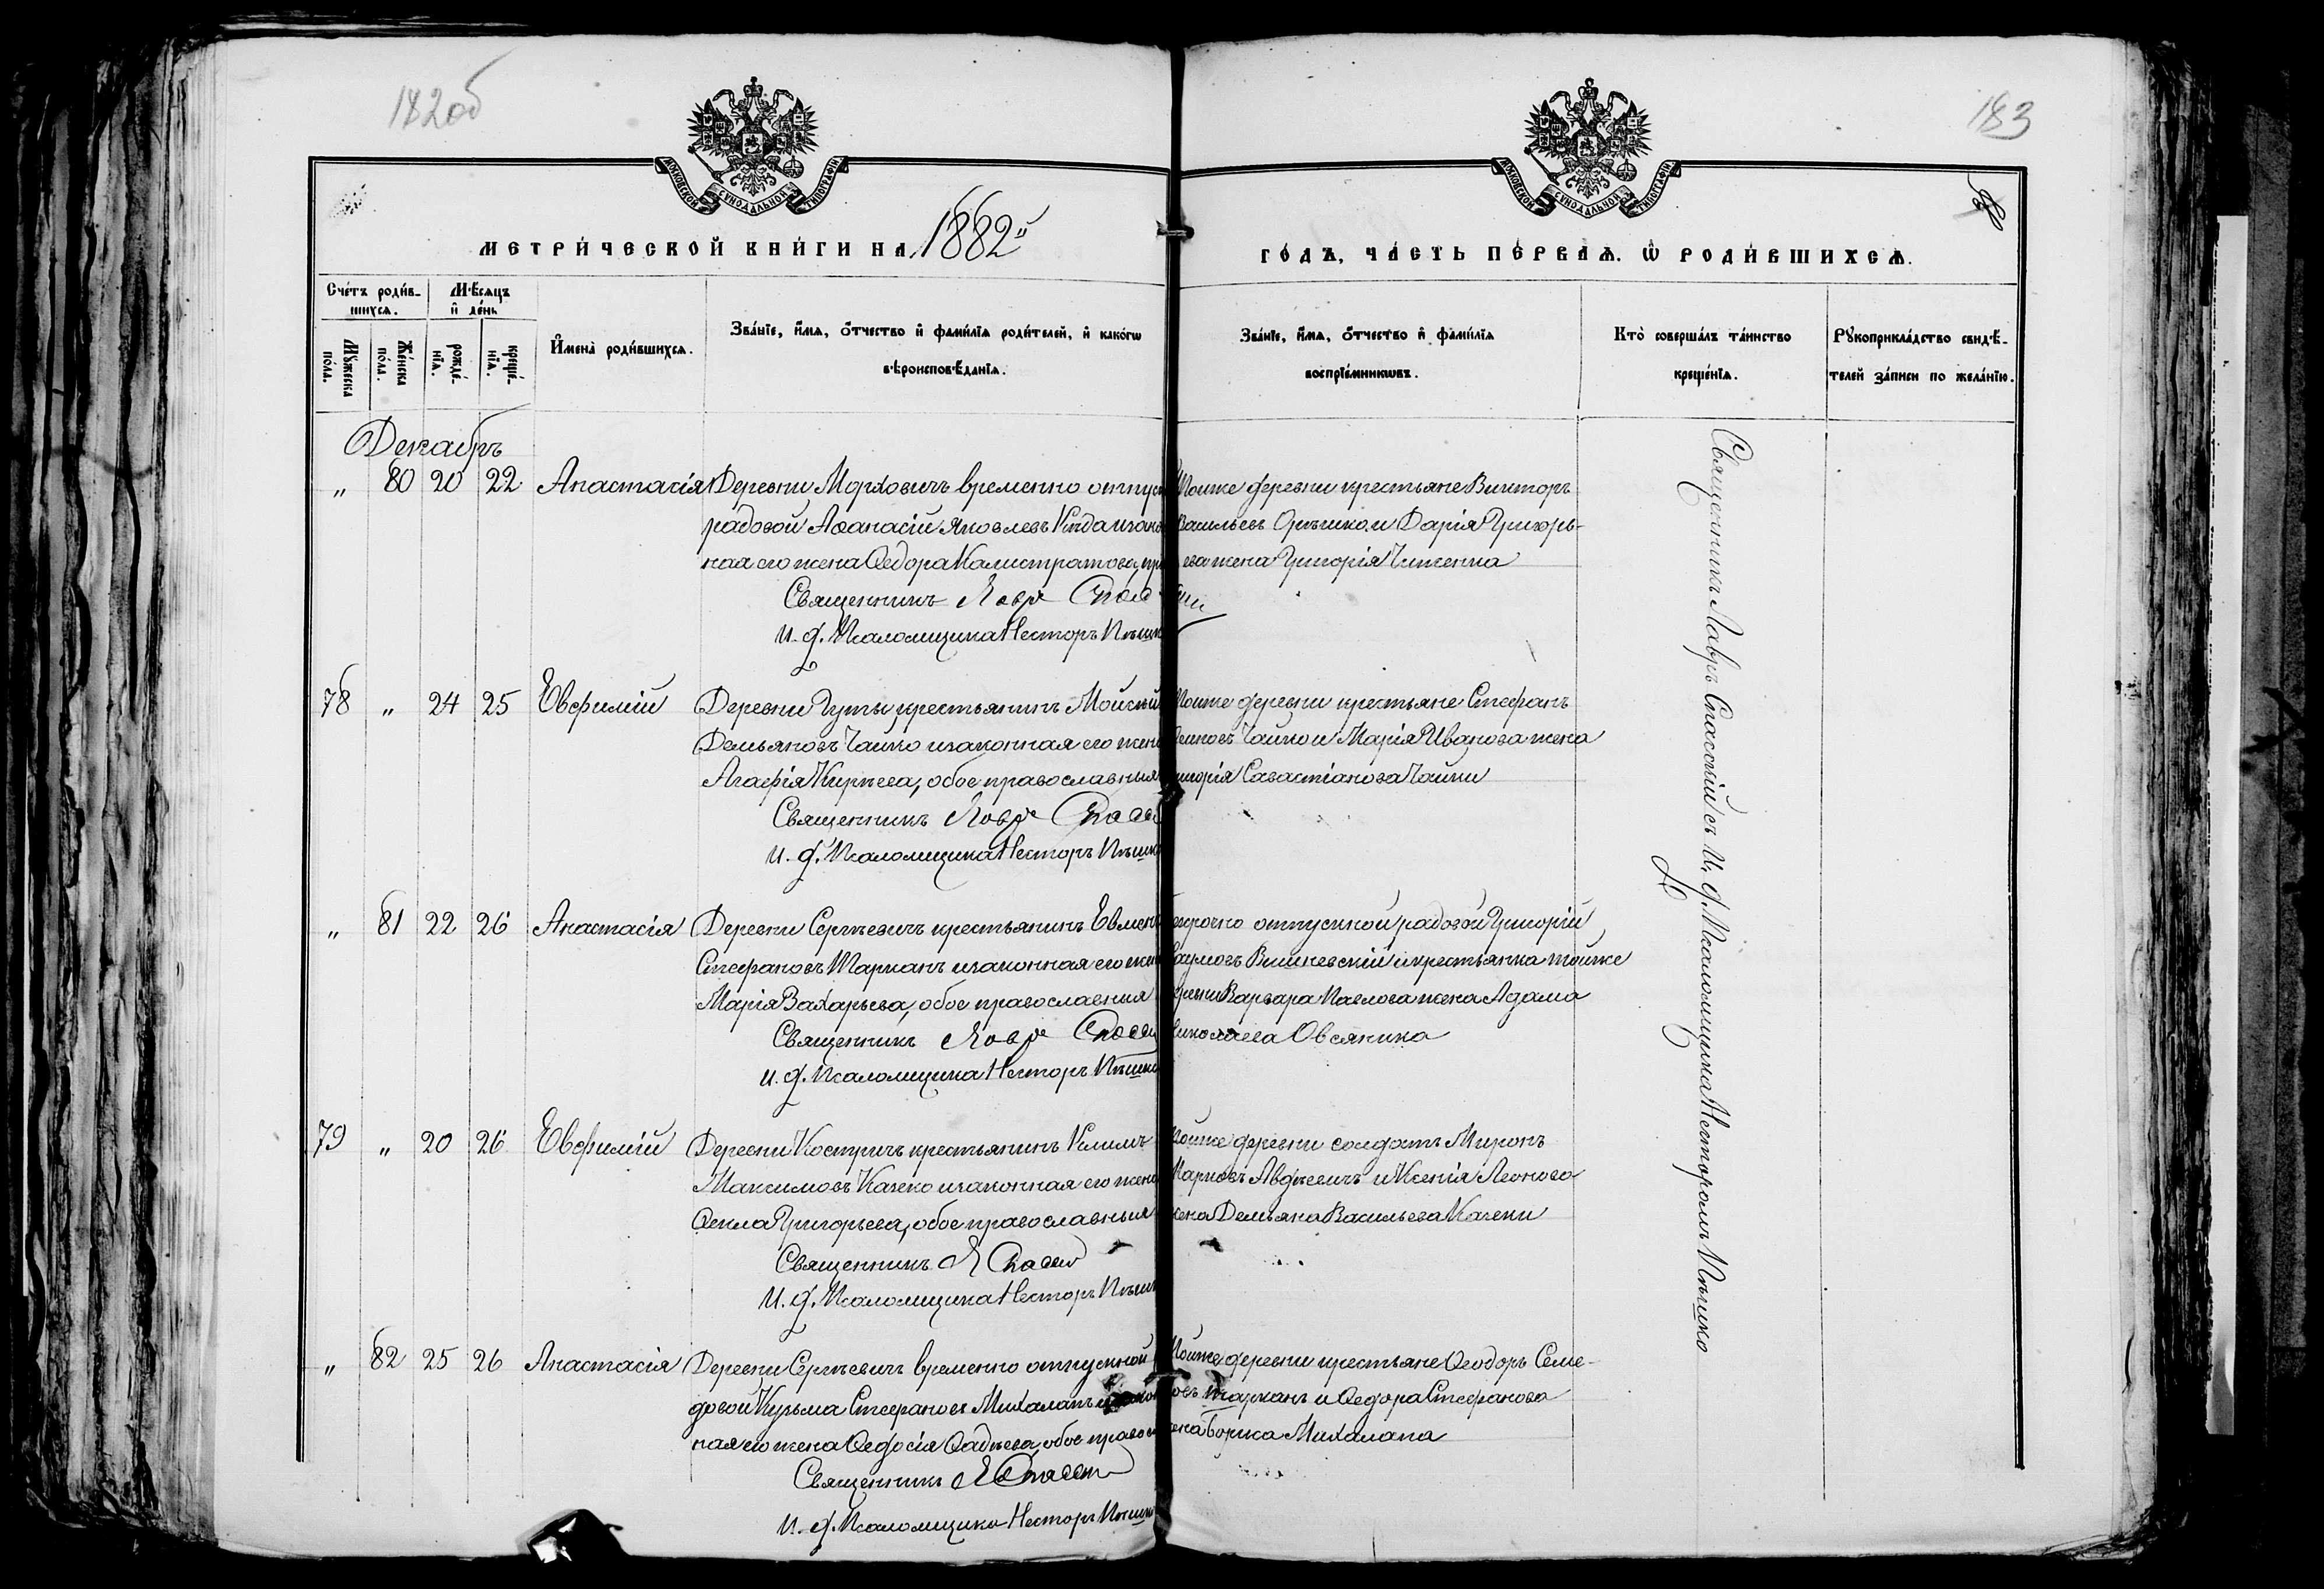 182об
183
МОСКОВСКОЙ СѴНОДАЛЬНОЙ ТИПОГРАФІИ
МОСКОВСКОЙ СѴНОДАЛЬНОЙ ТИПОГРАФІИ
МЕТРИ́ЧЕСКОЙ КНИ́ГИ НА 1882й
ГО́ДЪ, ЧА́СТЬ ПЕ́РВАѦ. Ѡ РОДИ́ВШИХСѦ.
Сче́тъ роди́в-
шихсѧ.
Мѣ́сѧцъ
и҆ де́нь
Мꙋ́жеска
по́ла.
Же́нска
по́ла.
рожде́-
нїѧ.
креще́-
нїѧ.
И҆мена̀ роди́вшихсѧ.
Зва́нїе, и҆́мѧ, ѻ҆́тчество и҆ фами́лїѧ роди́телей, и҆ како́гѡ
вѣроисповѣ́данїѧ.
Зва́нїе, и҆́мѧ, ѻ҆́тчество и҆ фами́лїѧ
воспрїе́мникѡвъ.
Кто̀ соверша́лъ та́инство
креще́нїѧ.
Рꙋкоприкла́дство свидѣ́-
телей за́писи по жела́нїю.
Декабрь
„ 80 20 22 Анастасія Деревни Морховичъ временно отпуск
рядовой Аѳанасій Яковлевъ законо
ная его жена Ѳедора Калистратова, пр
Священникъ Лавръ Спасскій
И. д. Псаломщика Несторъ Пѣшко
Тойже деревни крестьяне Викторъ
Васильевъ и Дарія Григорь-
ева жена Григорія
78 „ 24 25 Евфимій Деревни Гуты крестьянинъ Мойсей
Демьяновъ Чайко изаконная его жена
Агафія Кирѣева, обое православныя
Священникъ Лавръ Спасс
И. д. Псаломщика Несторъ Пѣшко
Тойже деревни крестьяне Стефанъ
Чайко и Марія Иванова жена
Григорія Савастіанова Чайки
„ 81 22 26 Анастасія Деревни Сергѣевичъ крестьянинъ Евмен
Стефановъ Шарканъ изаконная его жена
Марія Захарьева, обое православныя
Священникъ Лавръ Спасск
И. д. Псаломщика Несторъ Пѣшко
безсрочно отпускной рядовой Григорій
Наумовъ Вишневскій и крестьянка тойже
деревни Варвара Павлова жена Адама
Николаева Овсяника
79 „ 20 26 Евфимій Деревни Костричъ крестьянинъ Климъ
Максимовъ Качеко изаконная его жена
Ѳекла Григорьева, обое православныя
Священникъ Л Спасск
И. д. Псаломщика Несторъ Пѣшк
Тойже деревни солдатъ Миронъ
Марковъ Авдѣевичъ и Ксенія Леонова
жена Демьяна Васильева Качеки
„ 82 25 26 Анастасія Деревни Сергѣевичъ временно отпускной ря
довой Кузьма Стефановъ Михалапъ изакон
ная его жена Ѳедосія Ѳадѣева, обое правосл
Священникъ Л Спасск
И. д. Псаломщика Несторъ Пѣшко
Тойже деревни крестьяне Ѳеодоръ Семе-
новъ Шарканъ и Ѳедора Стефанова
жена Бориса Михалапа
Священникъ Лавръ Спасскій съ И. д. Псаломщика Несторомъ Пѣшко